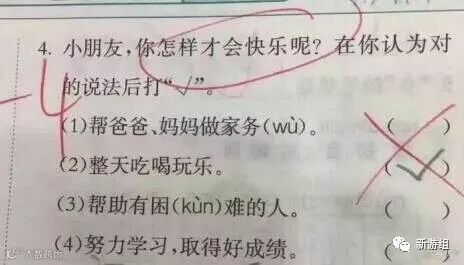 4. 小朋友,你怎样才会快乐呢?在你认为对
的说法后打“√”。
-4
(1)帮爸爸、妈妈做家务(wù)。 ( )
(2)整天吃喝玩乐。 (√)
(3)帮助有困(kùn)难的人。 ( )
(4)努力学习,取得好成绩。 ( )
大数跨境
新游组